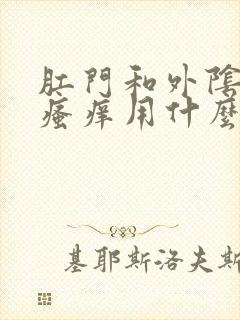 肛門和外陰
瘙痒用什麼
基耶斯洛夫斯